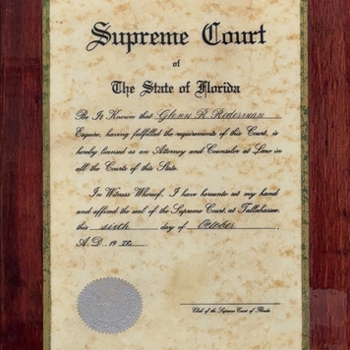 Supreme Court
of
The State of Florida
Be It Known that Glenn R. Rederman
Esquire, having fulfilled the requirements of this Court, is
hereby licensed as an Attorney and Counselor at Law in
all the Courts of this State.
In Witness Whereof, I have hereunto set my hand
and affixed the seal of the Supreme Court, at Tallahassee
this sixth day of October
A. D., 19
Clerk of the Supreme Court of Florida